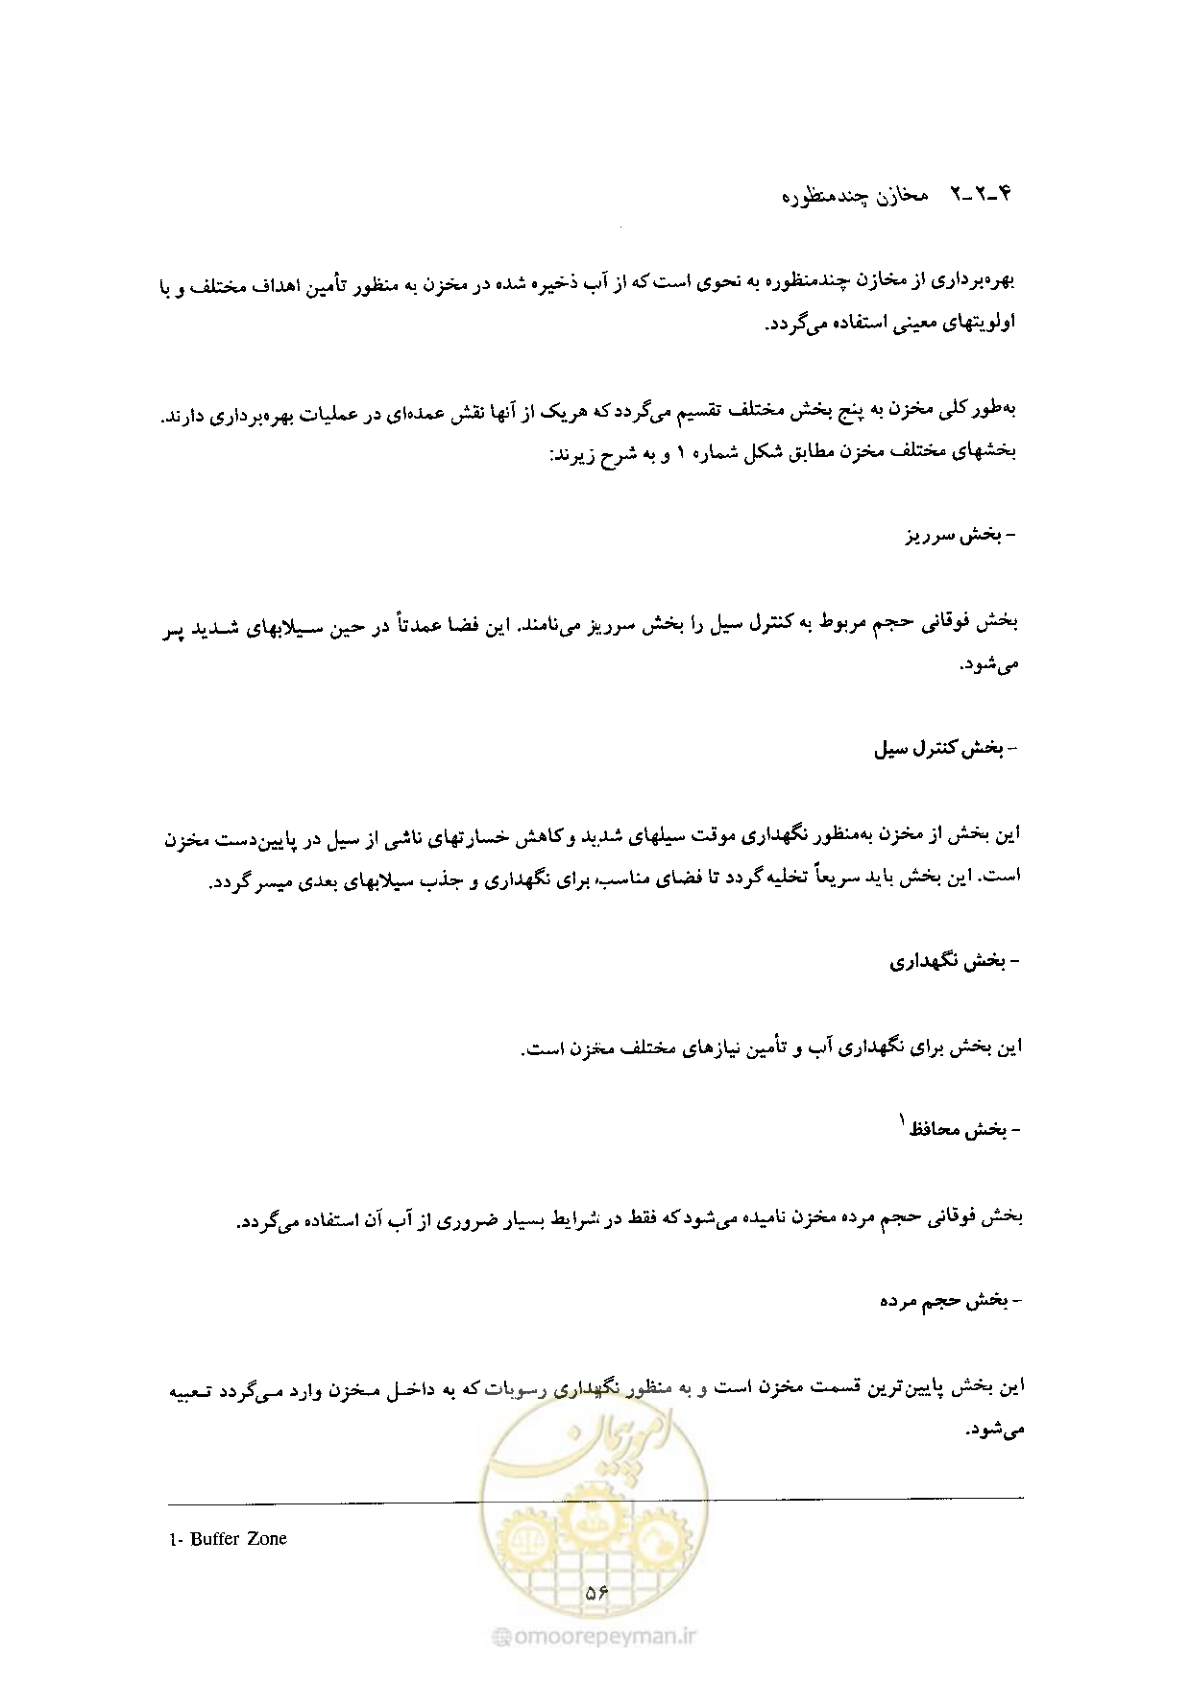 ۴ـ۲ـ۲ مخازن چندمنظوره
بهره‌برداری از مخازن چندمنظوره به نحوی است که از آب ذخیره شده در مخزن به منظور تأمین اهداف مختلف و با
اولویتهای معینی استفاده می‌گردد.
به‌طور کلی مخزن به پنج بخش مختلف تقسیم می‌گردد که هریک از آنها نقش عمده‌ای در عملیات بهره‌برداری دارند.
بخشهای مختلف مخزن مطابق شکل شماره ۱ و به شرح زیرند:
- بخش سرریز
بخش فوقانی حجم مربوط به کنترل سیل را بخش سرریز می‌نامند. این فضا عمدتاً در حین سیلابهای شدید پر
می‌شود.
- بخش کنترل سیل
این بخش از مخزن به‌منظور نگهداری موقت سیلهای شدید و کاهش خسارتهای ناشی از سیل در پایین‌دست مخزن
است. این بخش باید سریعاً تخلیه گردد تا فضای مناسب برای نگهداری و جذب سیلابهای بعدی میسر گردد.
- بخش نگهداری
این بخش برای نگهداری آب و تأمین نیازهای مختلف مخزن است.
- بخش محافظ ۱
بخش فوقانی حجم مرده مخزن نامیده می‌شود که فقط در شرایط بسیار ضروری از آب آن استفاده می‌گردد.
- بخش حجم مرده
این بخش پایین‌ترین قسمت مخزن است و به منظور نگهداری رسوبات که به داخل مخزن وارد می‌گردد تعبیه
می‌شود.
1- Buffer Zone
۵۶
امور پیمان
@omoorepeyman.ir